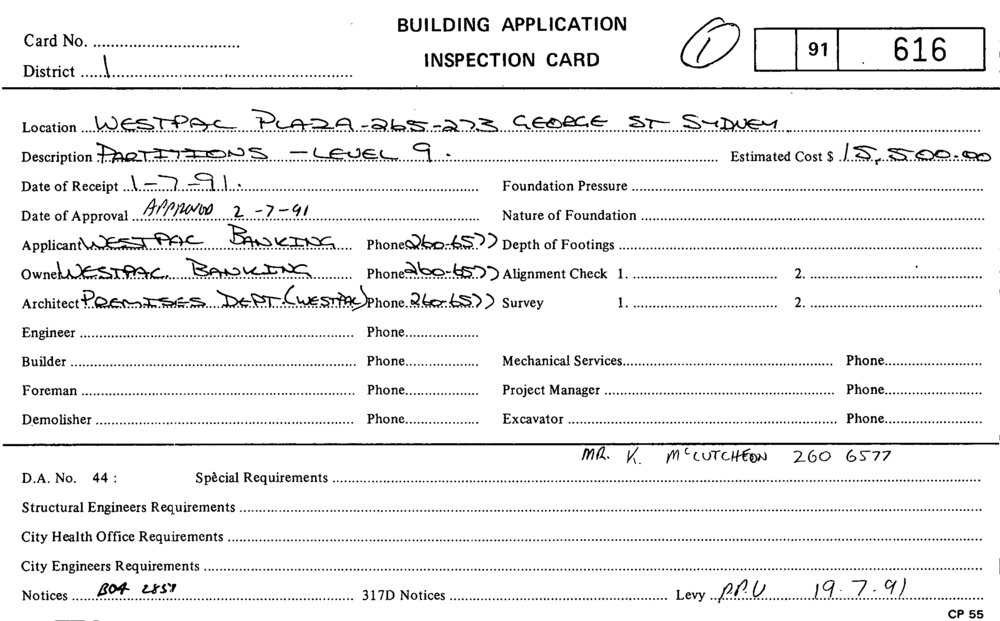 BUILDING APPLICATION
INSPECTION CARD
Card No.
District 1
1
91 616
Location WESTPAC PLAZA - 265-273 GEORGE ST SYDNEY
Description PARTITIONS - LEVEL 9. Estimated Cost $ 15,500.00
Date of Receipt 1-7-91. Foundation Pressure
Date of Approval APPROVED 2-7-91 Nature of Foundation
Applicant WESTPAC BANKING Phone 260-6577 Depth of Footings
Owner WESTPAC BANKING Phone 260-6577 Alignment Check 1. 2.
Architect PREMISES DEPT (WESTPAC) Phone 260-6577 Survey 1. 2.
Engineer Phone
Builder Phone Mechanical Services Phone
Foreman Phone Project Manager Phone
Demolisher Phone Excavator Phone
MR. K. McCUTCHEON 260 6577
D.A. No. 44 : Special Requirements
Structural Engineers Requirements
City Health Office Requirements
City Engineers Requirements
Notices BOA 317D Notices Levy 19.7.91
CP 55